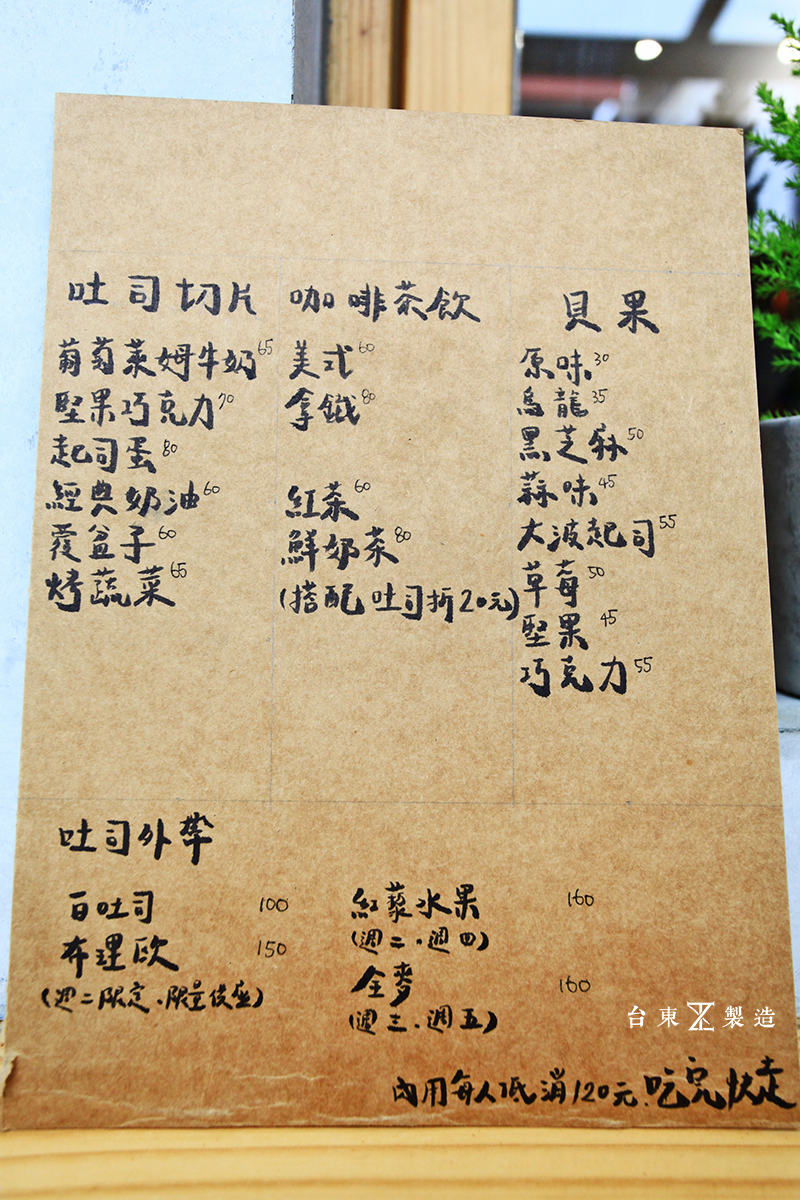 吐司切片
葡萄萊姆牛奶 65
堅果巧克力 70
起司蛋 80
經典奶油 60
覆盆子 60
烤蔬菜 65
咖啡茶飲
美式 60
拿鐵 80
紅茶 60
鮮奶茶 80
(搭配吐司折20元)
貝果
原味 30
烏龍 35
黑芝麻 50
蒜味 45
大波起司 55
草莓 50
堅果 45
巧克力 55
吐司外帶
白吐司 100
布理歐 150
(週二限定.限量供應)
紅藜水果 160
(週二.週四)
全麥 160
(週三.週五)
內用每人低消120元.吃完快走
台東製造